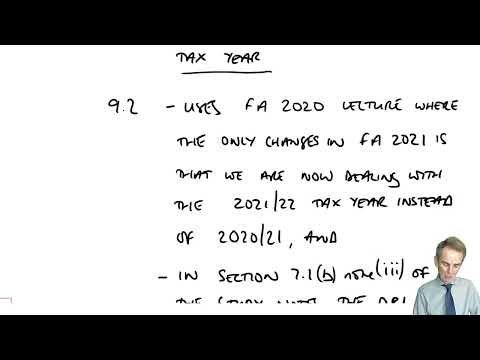 TAX YEAR
9.2 - USES FA 2020 LECTURE WHERE
THE ONLY CHANGES IN FA 2021 IS
THAT WE ARE NOW DEALING WITH
THE 2021/22 TAX YEAR INSTEAD
OF 2020/21, AND
- IN SECTION 7.1(b) note(iii) OF
THE STUDY NOTES THE